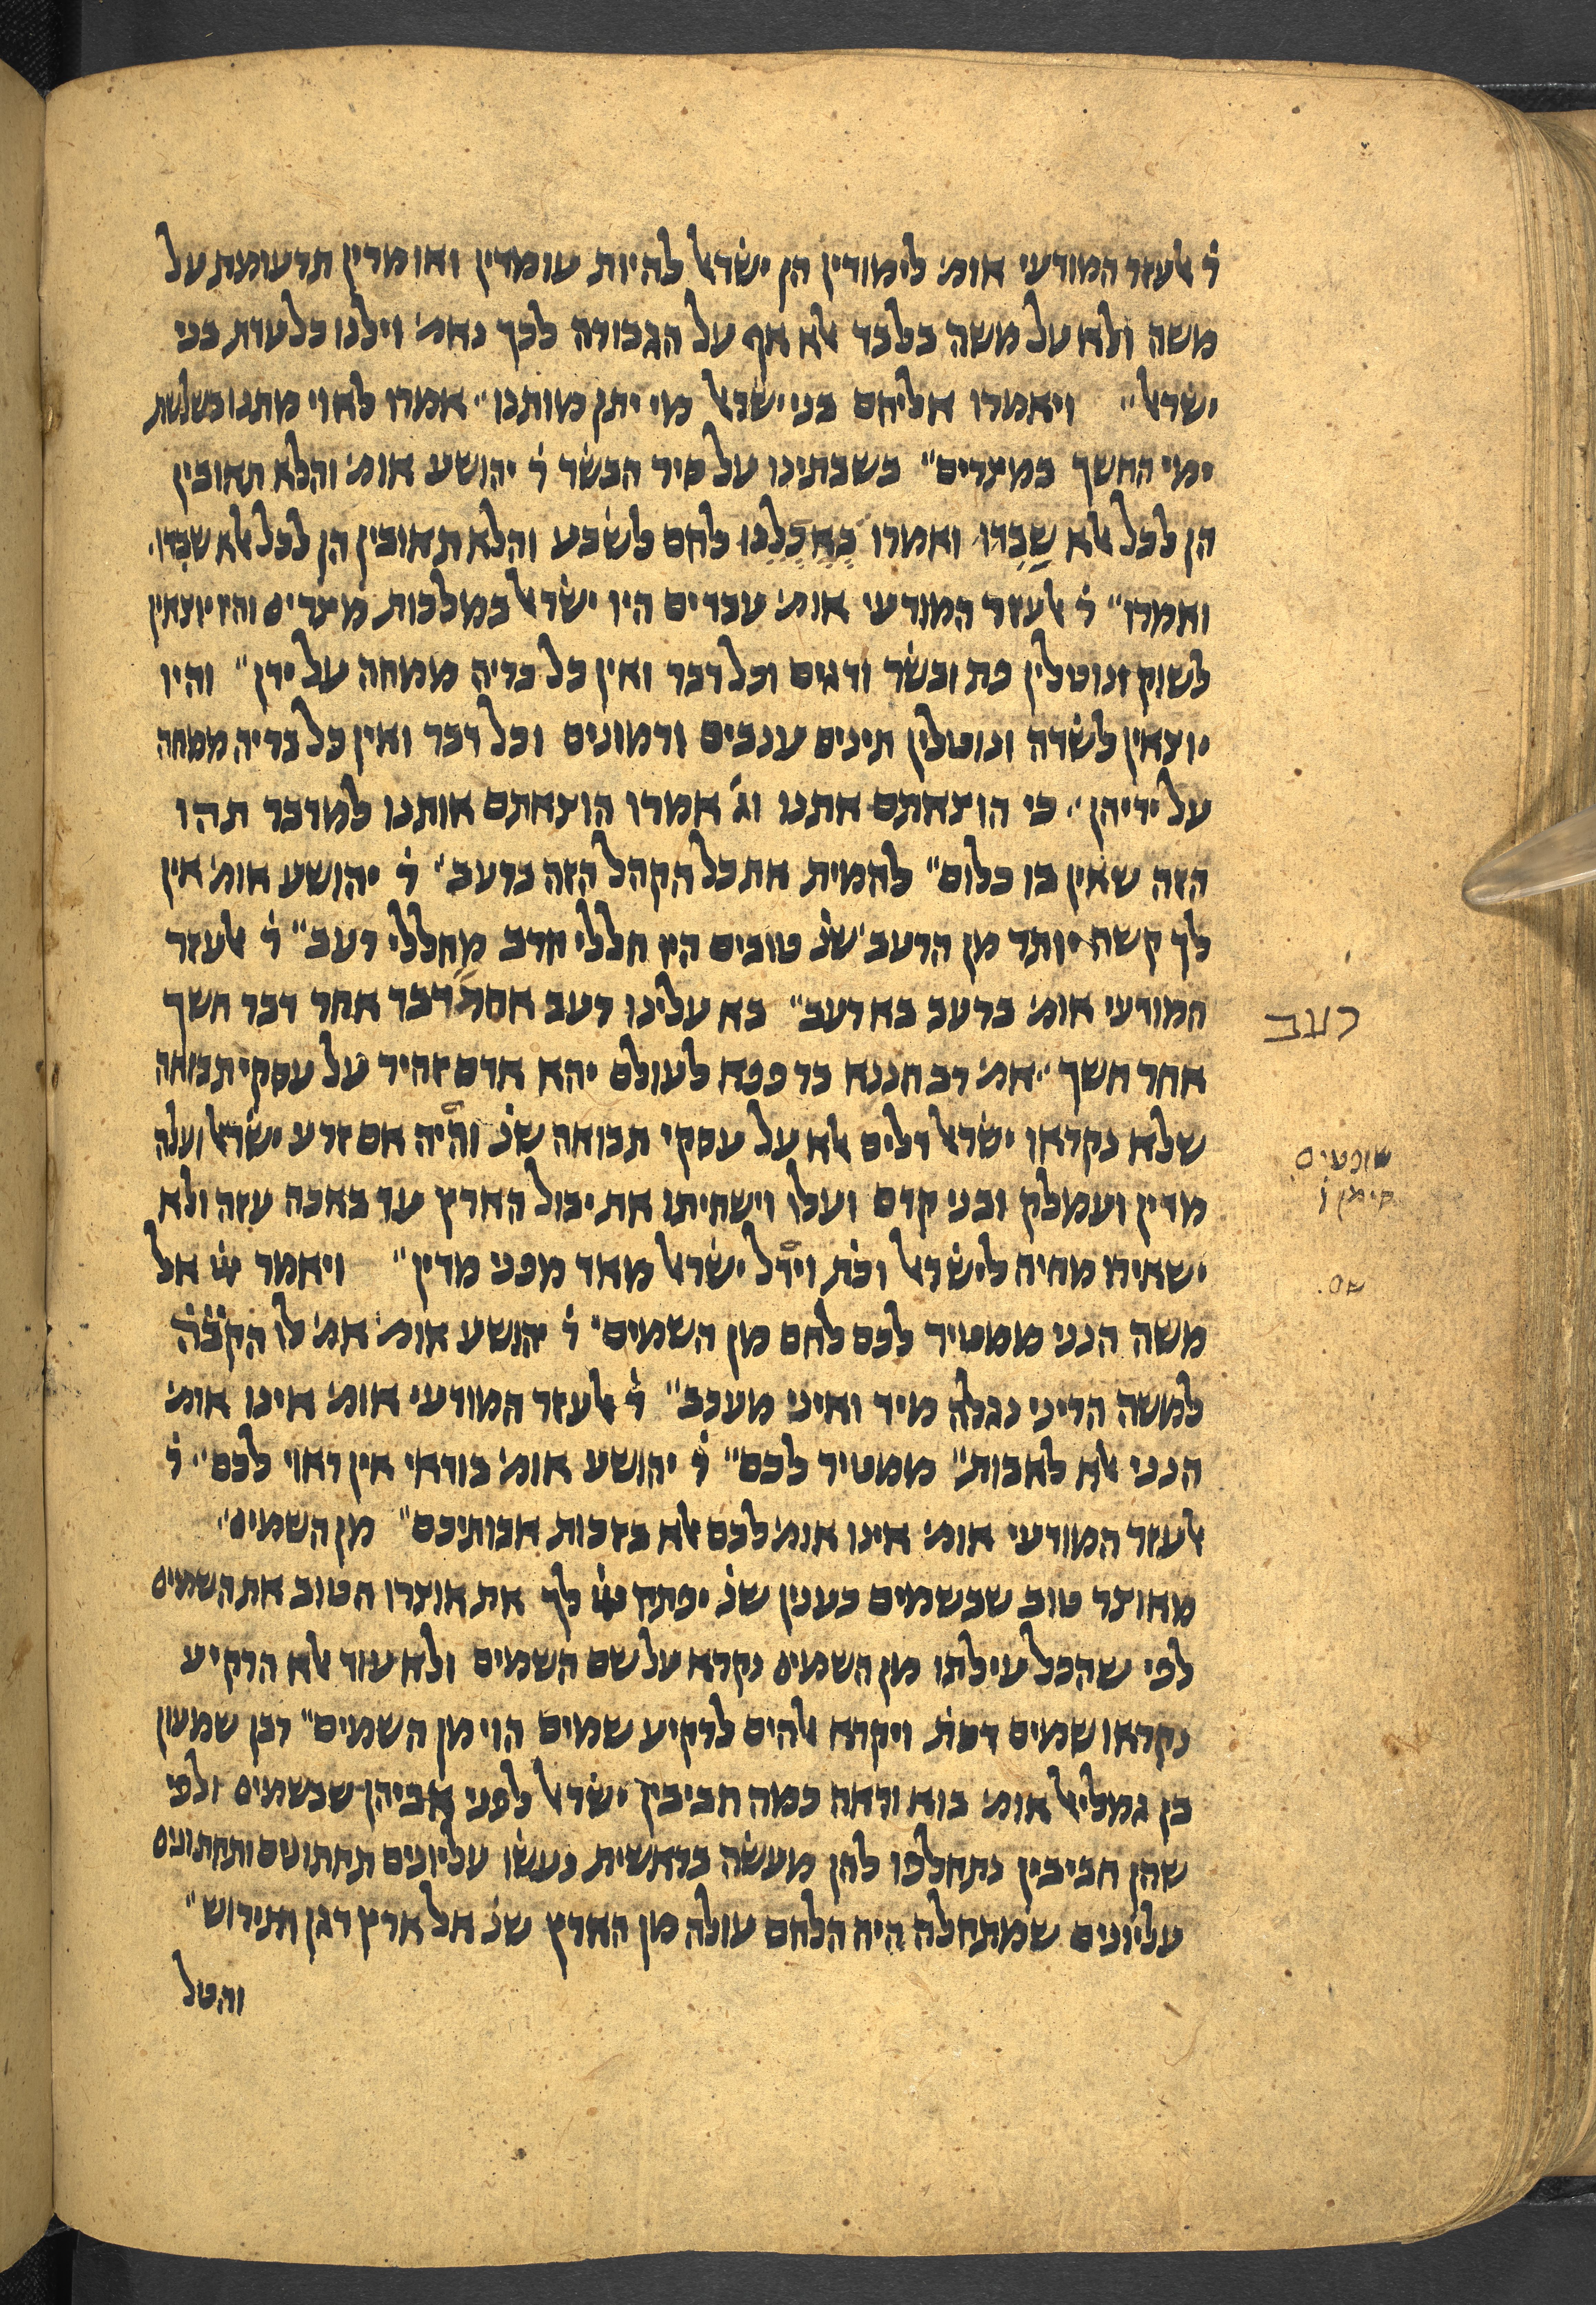 ר׳ אלעזר המודעי אומ׳ לימודין הן ישראל להיות עומדין ואומרין תרעומת על
משה ולא על משה בלבד אלא אף על הגבורה לכך נאמ׳ וילנו כל עדת בני
ישראל״ ויאמרו אליהם בני ישראל מי יתן מותנו״ אמרו לאוי מתנו בשלשת
ימי החשך במצרים״ בשבתינו על סיר הבשר ר׳ יהושע אומ׳ והלא תאובין
הן לכל אלא שברו ואמרו באכלנו לחם לשבע והלא תאובין הן לכל אלא שברו
ואמרו״ ר׳ אלעזר המודעי אומ׳ עבדים היו ישראל במלכות מצרים והיו יוצאין
לשוק ונוטלין פת ובשר ודגים וכל דבר ואין כל בריה ממחה על ידן״ והיו
יוצאין לשדה ונוטלין תינים ענבים ורמונים וכל דבר ואין כל בריה ממחה
על ידיהן״ כי הוצאתם אתנו וג׳ אמרו הוצאתם אותנו למדבר תהו
הזה שאין בו כלום״ להמית את כל הקהל הזה ברעב״ ר׳ יהושע אומ׳ אין
לך קשה יותר מן הרעב שנ׳ טובים היו חללי חרב מחללי רעב״ ר׳ אלעזר
המודעי אומ׳ ברעב בא רעב״ בא עלינו רעב אחר דבר אחר דבר חשך
אחר חשך״ אמ׳ רב חננא בר פפא לעולם יהא אדם זהיר על עסקי תבואה
שלא נקראו ישראל דלים אלא על עסקי תבואה שנ׳ והיה אם זרע ישראל ועלה
מדין ועמלק ובני קדם ועלו וישחיתו את יבול הארץ עד באכה עזה ולא
ישאירו מחיה לישראל וכת׳ וידל ישראל מאד מפני מדין״ ויאמר ײ אל
משה הנני ממטיר לכם לחם מן השמים״ ר׳ יהושע אומ׳ אמ׳ לו הקב״ה
למשה הריני נגלה מיד ואיני מעכב״ ר׳ אלעזר המודעי אומ׳ אינו אומ׳
הנני אלא לאבות״ ממטיר לכם״ ר׳ יהושע אומ׳ בודאי אין ראוי לכם״ ר׳
אלעזר המודעי אומ׳ אינו אומ׳ לכם אלא בזכות אבותיכם״ מן השמים״
מאוצר טוב שבשמים כענין שנ׳ יפתח ײ לך את אוצרו הטוב את השמים
לפי שהכל עילתו מן השמים נקרא על שם השמים ולא עוד אלא הרקיע
נקראו שמים דכת׳ ויקרא אלהים לרקיע שמים הוי מן השמים״ רבן שמעון
בן גמליאל אומ׳ בוא וראה כמה חביבין ישראל לפני אביהן שבשמים ולפי
שהן חביבין נתחלפו להן מעשה בראשית נעשו עליונים תחתונים ותחתונים
עליונים שמתחלה היה הלחם עולה מן הארץ שנ׳ אל ארץ דגן ותירוש״
והטל
רעב
שופטים
סימן ו
שם.